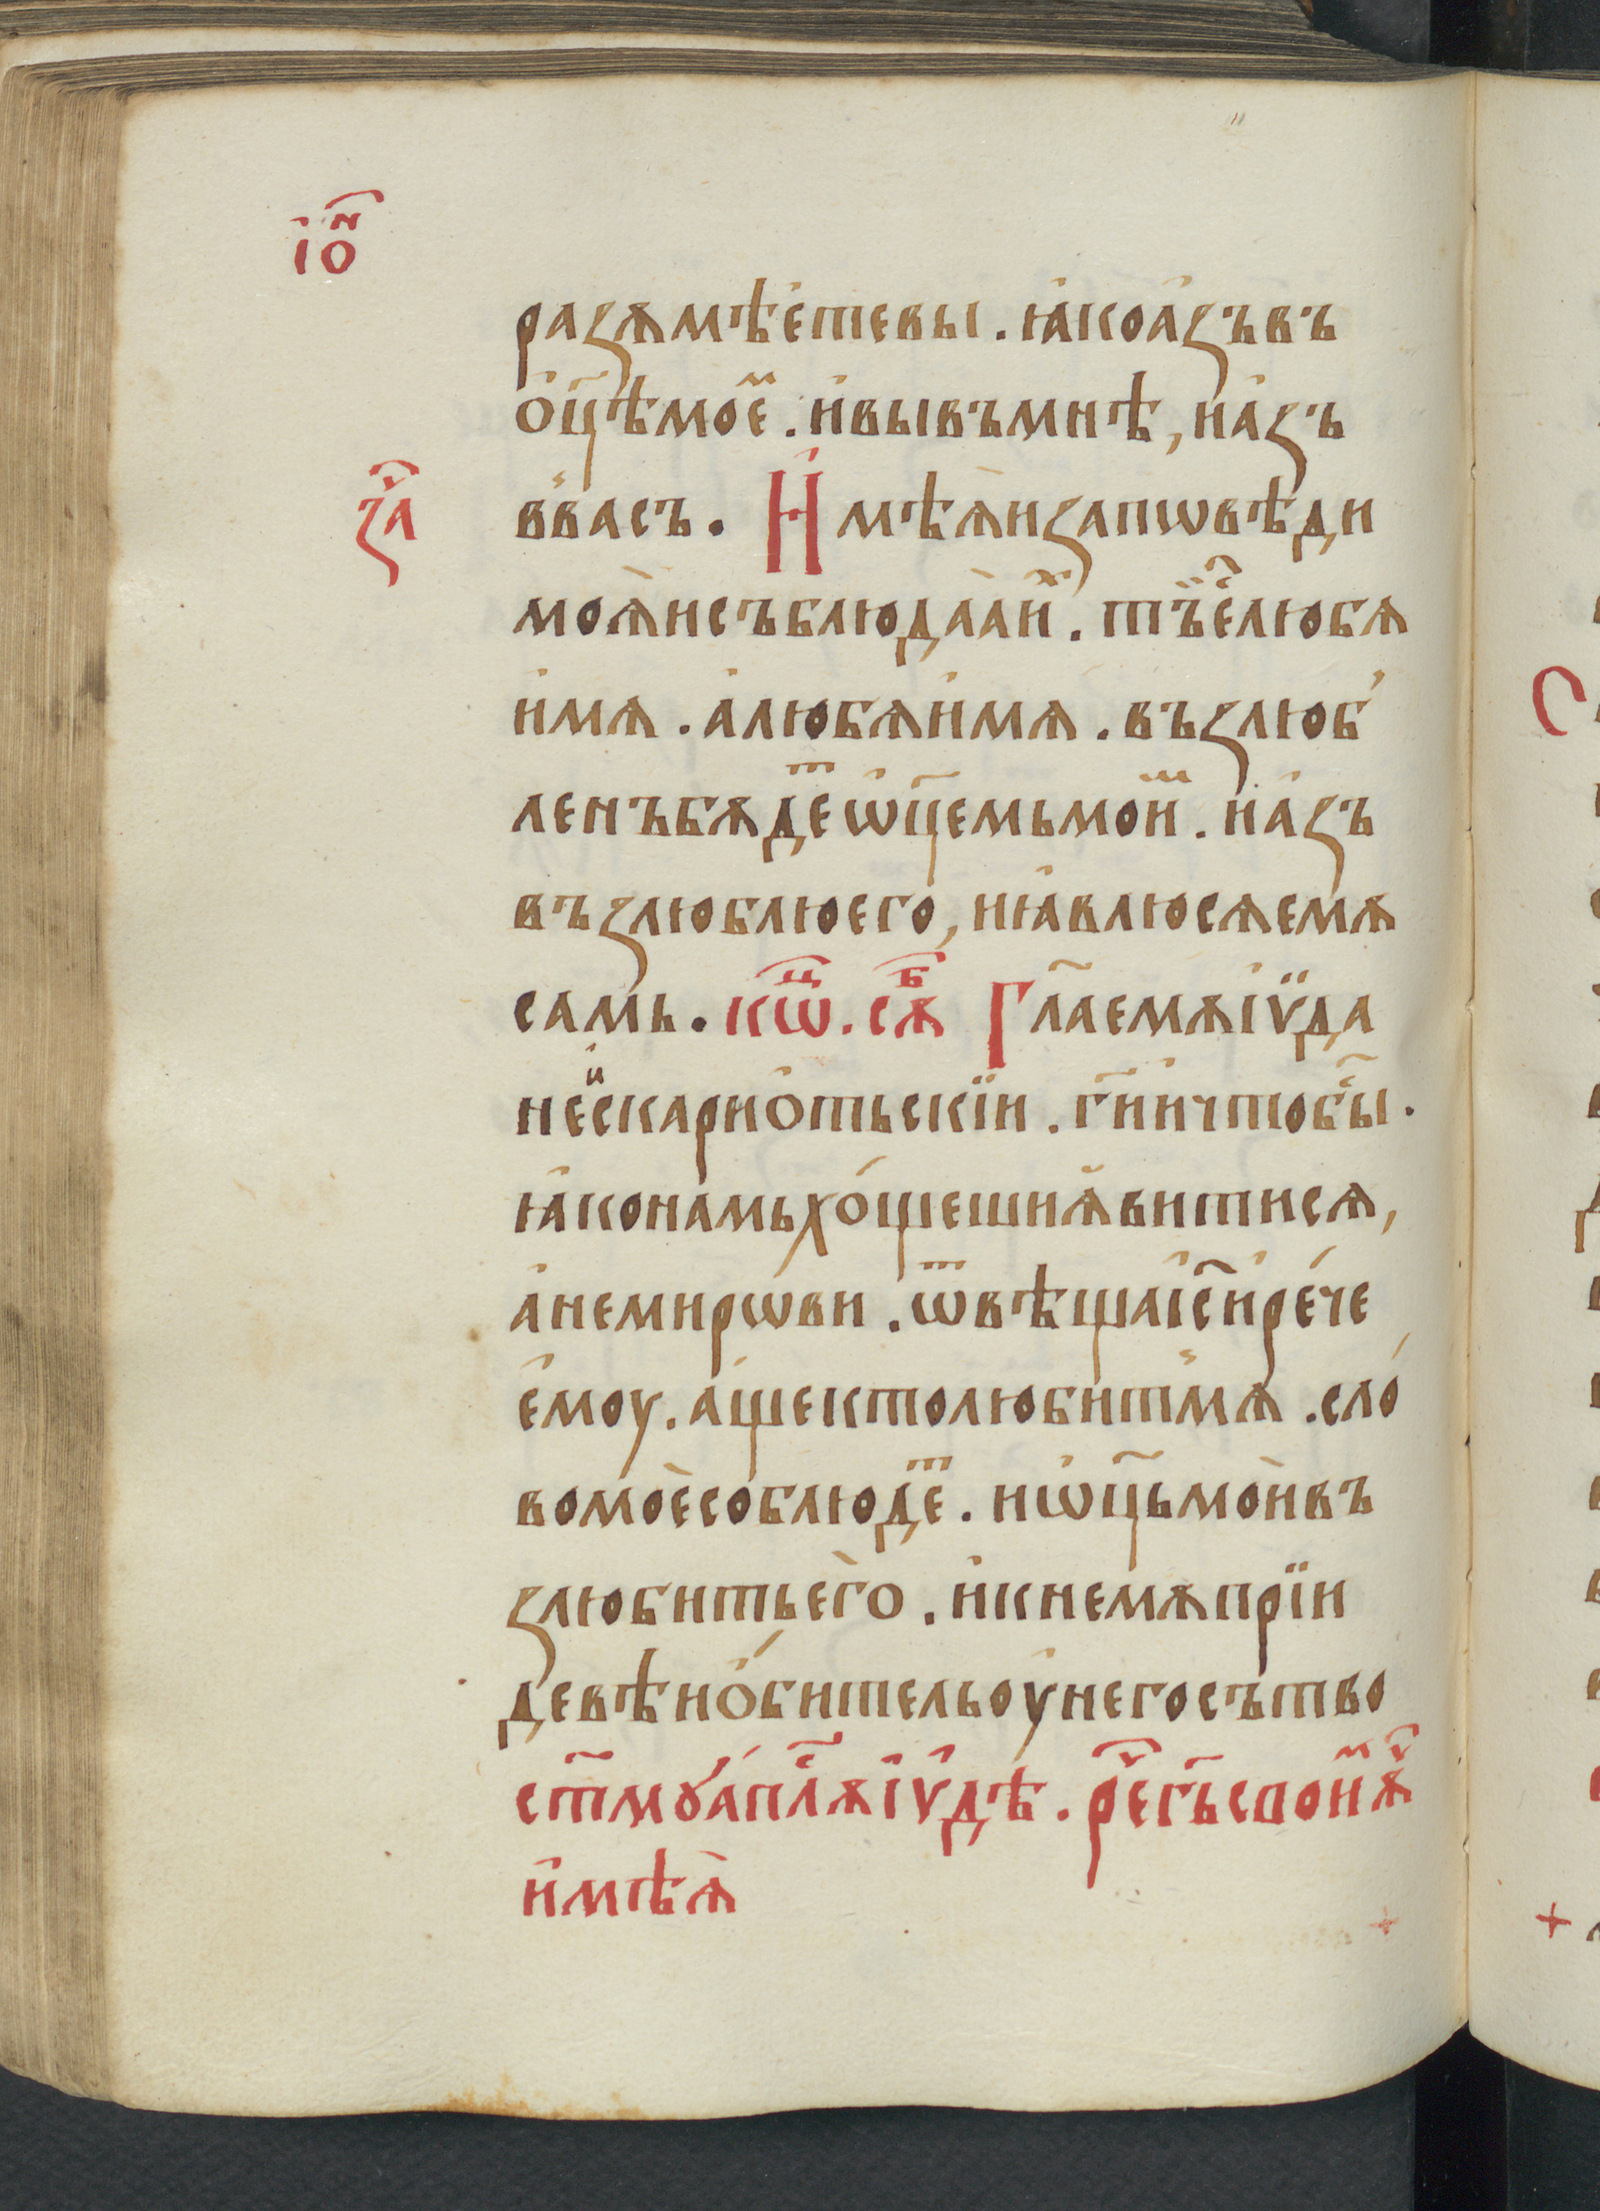 іо҃ⷩ
разѫмѣ́етевы . ꙗ҆коа҆зъвъ
о҆ц҃ѣмоеⷨ . и҆вывъмнѣ, иа҆зъ
за҇
въвасъ . И҆мѣѧ҆изапѡвѣди
моѧ҆исъблюдаа҆иⷯ . тъ҆еⷭлюбѧ
и҆мѧ . а҆любѧи҆мѧ . възлюб
ленъбѫдеⷮѡ҆ц҃емьмоиⷨ . иа҆зъ
възлюблюего҆, иꙗ҆влюсѧемѫ
самь . коⷰ҇ . сѫⷠ҇ Гл҃аемѫіѵ̈да
неи҆скарио҆тьскїи . гн҃ии҆чтобⷭ҇ы .
ꙗ҆конамьхо́щешиꙗ҆витисѧ,
а҆немирѡ́ви . ѿвѣщаі҆с҃и҆ре́че
є҆моу . а҆щектолюбитⸯмѧ . сло́
вомоѐсоблюдеⷮ . иѡ҆ц҃ьмои҆въ
злюбитьего̀ . и҆кнемѫпрїи
девѣио҆́бительоу҆негосътво
ст҃мꙋа҆пⷭ҇лѫі҆ѵ҆дѣ . рⷱ҇егⷭ҇ьсвоиⷨꙋⷱ҇
и҆мѣѧ̀